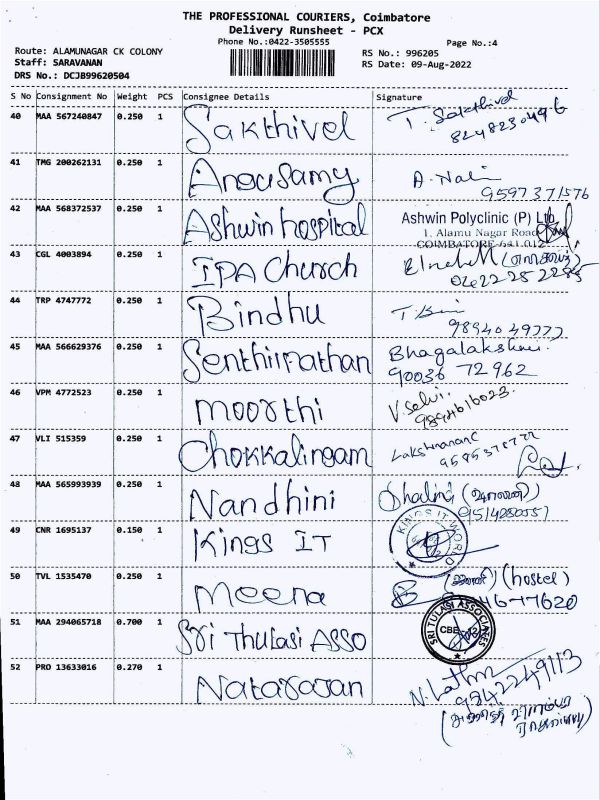 THE PROFESSIONAL COURIERS, Coimbatore
Delivery Runsheet - PCX
Phone No.:0422-3505555
Page No.:4
Route: ALAMUNAGAR CK COLONY
RS No.: 996205
Staff: SARAVANAN
RS Date: 09-Aug-2022
DRS No.: DCJB99620504
S No Consignment No Weight PCS Consignee Details Signature
40 MAA 567240847 0.250 1 Sakthivel T. Sakthivel
41 TMG 200262131 0.250 1 Angusamy A. Nali
9597371576
42 MAA 568372537 0.250 1 Ashwin hospital Ashwin Polyclinic (P) Ltd.
1, Alamu Nagar Road
COIMBATORE-641 012
43 CGL 4003894 0.250 1 IPA Church
44 TRP 4747772 0.250 1 Bindhu
45 MAA 566629376 0.250 1 Senthilnathan Bhagalakshmi
90036 72962
46 VPM 4772523 0.250 1 Moorthi V. Selvi.
9894616023
47 VLI 515359 0.250 1 Chokkalingam
48 MAA 565993939 0.250 1 Nandhini
49 CNR 1695137 0.150 1 Kings IT KINGS IT WORLD
50 TVL 1535470 0.250 1 Meena (hostel)
51 MAA 294065718 0.700 1 Sri Thulasi ASSO SRI TULASI ASSOCIATES
52 PRO 13633016 0.270 1 Natarajan
9842249113